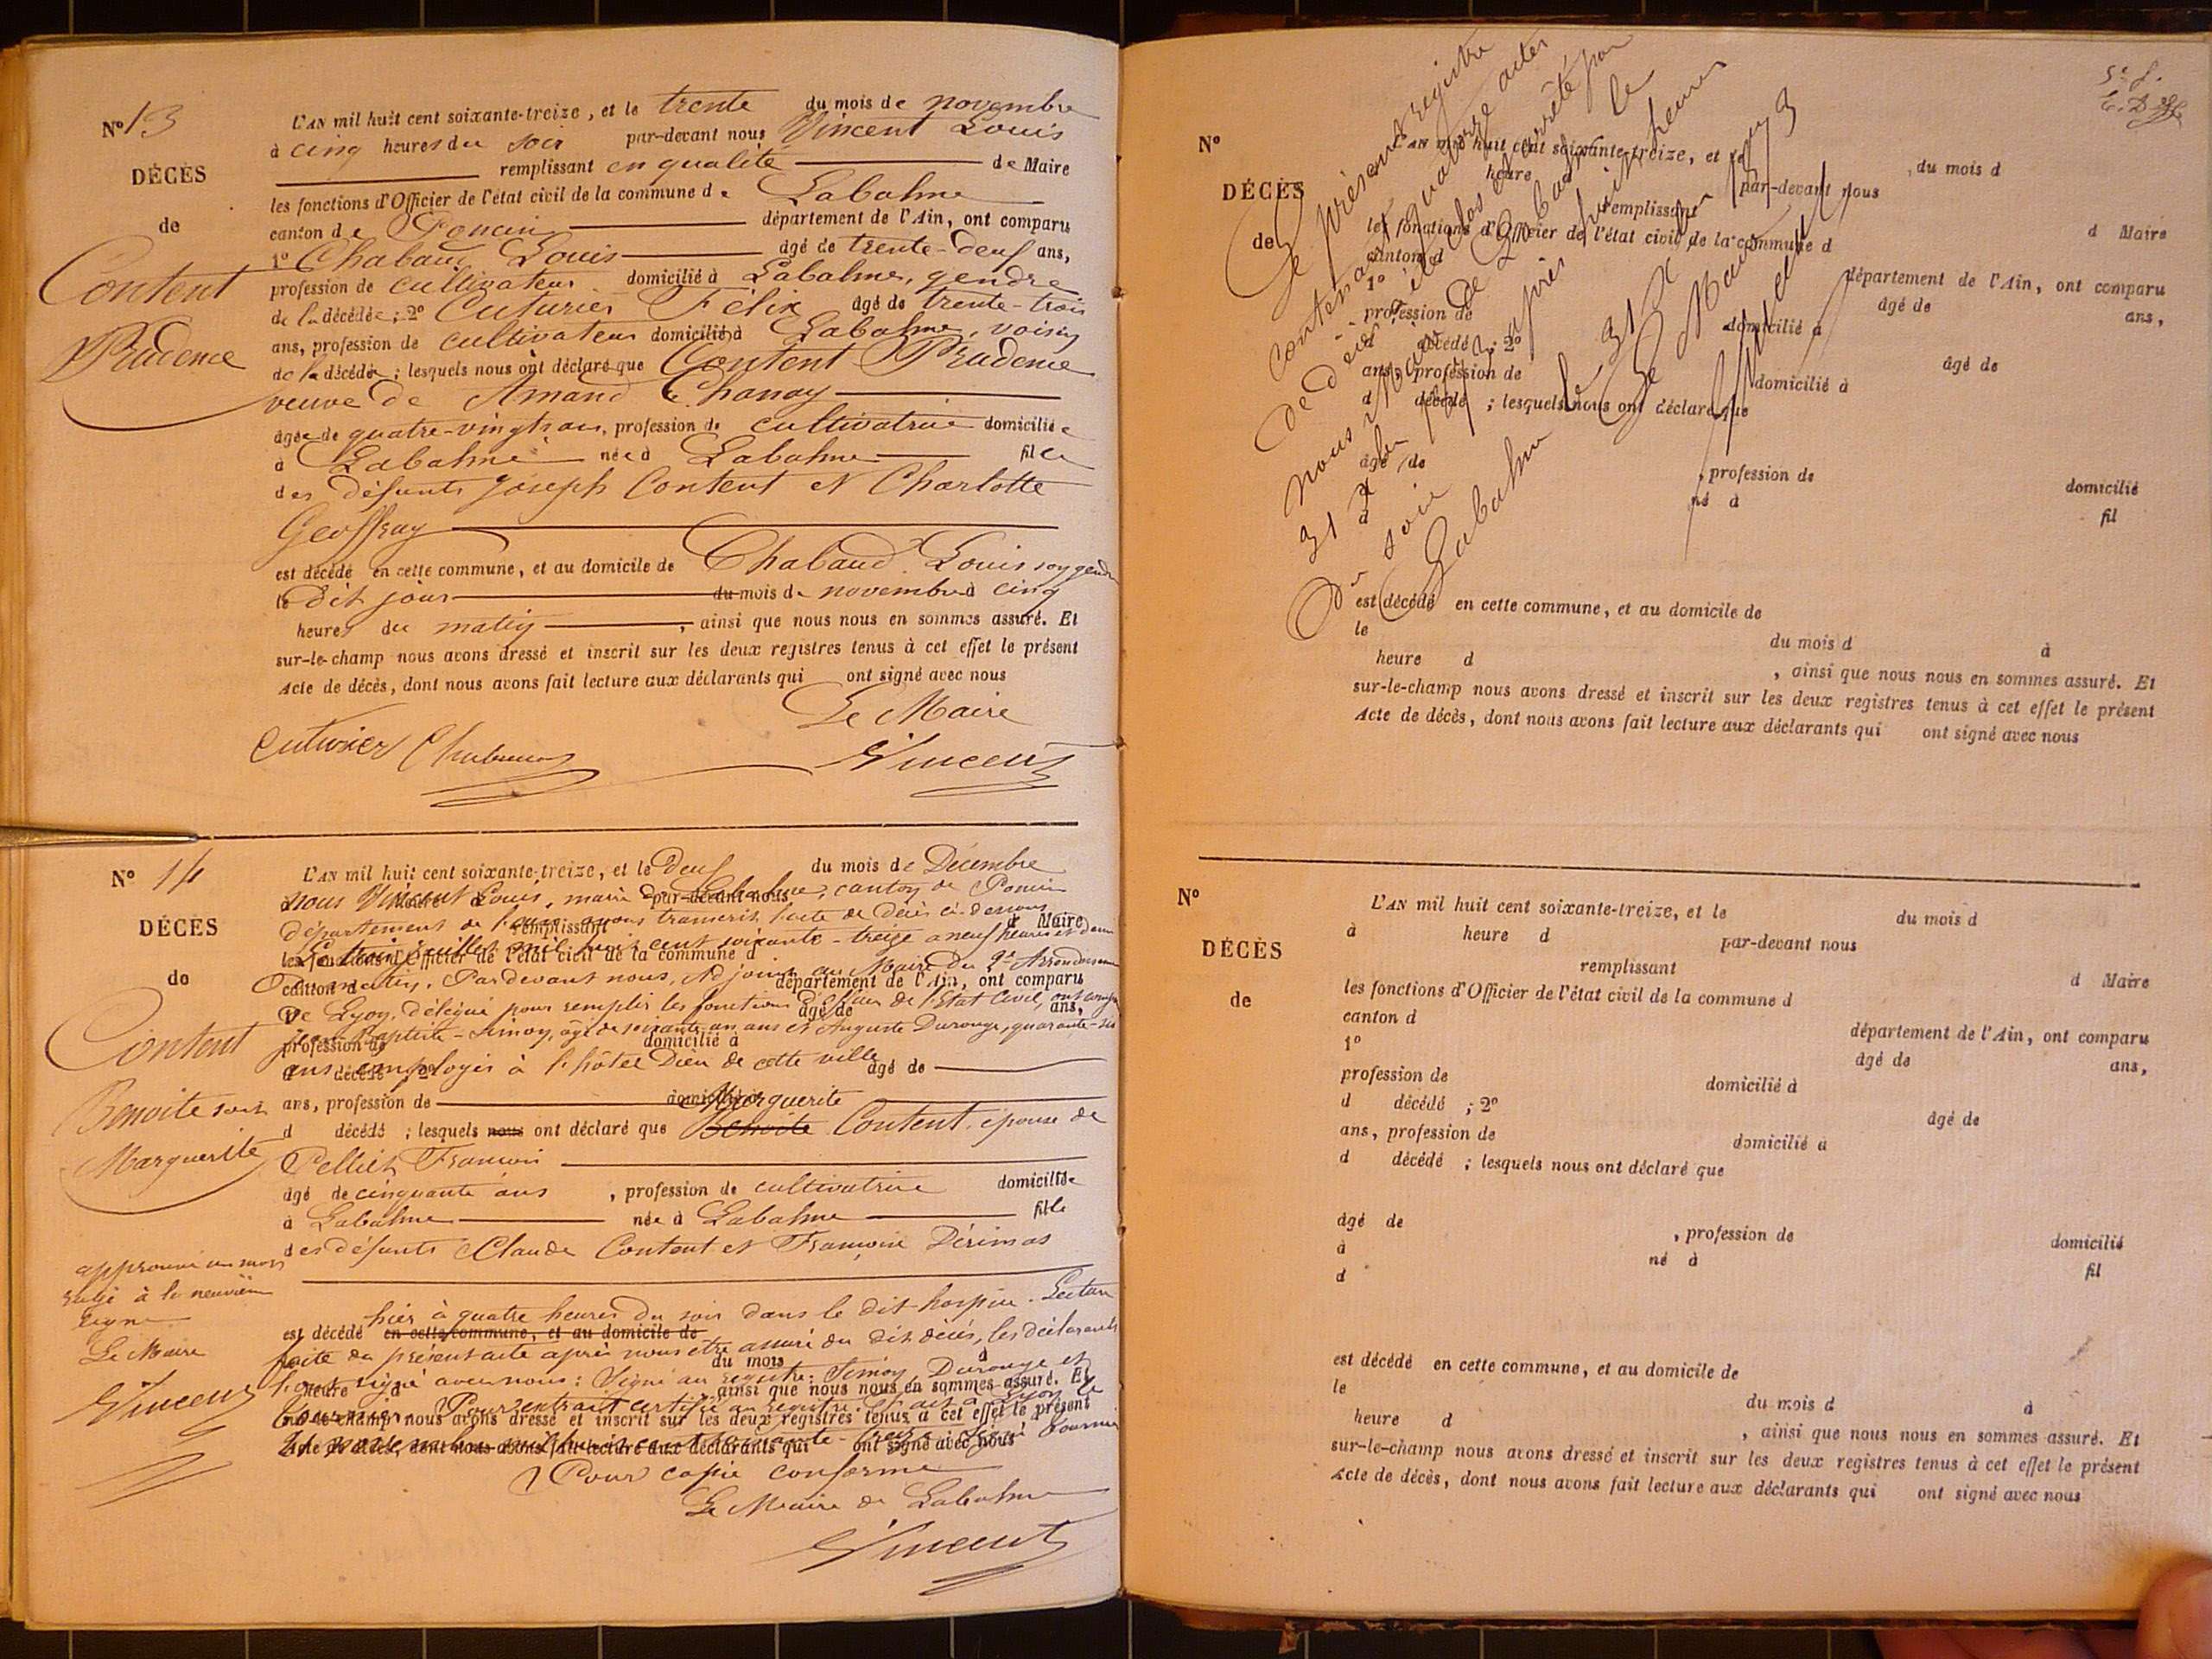 N° 13
DÉCÈS
de
Content
Prudence
L'AN mil huit cent soixante-treize, et le trente du mois de novembre
à cinq heures du soir par-devant nous Vincent Louis
remplissant en qualité de Maire
les fonctions d'Officier de l'état civil de la commune de Labalme
canton de Poncin département de l'Ain, ont comparu
1° Chabaud Louis âgé de trente-deuf ans,
profession de cultivateur domicilié à Labalme, gendre
de la décédée ; 2° Cuturier Félix âgé de trente-trois
ans, profession de cultivateur domicilié à Labalme, voisin
de la décédée ; lesquels nous ont déclaré que Content Prudence
veuve de Amand Chanay
âgée de quatre-vingts ans, profession de cultivatrice domiciliée
à Labalme née à Labalme fille
des défunts Joseph Content et Charlotte
Geoffray
est décédé en cette commune, et au domicile de Chabaud Louis son gendre
le dit jour du mois de novembre à cinq
heures du matin, ainsi que nous nous en sommes assuré. Et
sur-le-champ nous avons dressé et inscrit sur les deux registres tenus à cet effet le présent
Acte de décès, dont nous avons fait lecture aux déclarants qui ont signé avec nous
Le Maire
Cuturier Chabaud Vincent
N° 14
DÉCÈS
de
Content
Benoite soit
Marguerite
L'AN mil huit cent soixante-treize, et le Deuf du mois de Décembre
nous Vincent Louis, maire de Labalme, canton de Poncin
département de l'ain, avons transcrit l'acte de décès ci-dessous
Le trois juillet mil huit cent soixante-treize à neuf heures et demi
Du matin, Pardevant nous, Adjoint au Maire du 2e Arrondissement
De Lyon, délégué pour remplir les fonctions d'officier de l'Etat Civil, ont comparu
Jean-Baptiste Simon, âgé de soixante-un ans et Auguste Durouge, quarante-six
ans, employés à l'hôtel Dieu de cette ville
ans, profession de domicilié à Marguerite
d décédé ; lesquels nous ont déclaré que Benoite Content, épouse de
Pelliet François
âgé de cinquante ans, profession de cultivatrice domiciliée
à Labalme née à Labalme fille
des défunts Claude Content et Françoise Dérimas
approuvé un mot
rayé à la neuvième
ligne
Le Maire
Vincent
hier à quatre heures du soir dans le dit hospice. Lecture
est décédé en cette commune, et au domicile de
faite du présent acte après nous être assuré du dit décès, les déclarants
l'ont signé avec nous : Signé au registre : Simon, Durouge et
Pour extrait certifié au registre. Fait à Lyon le
Pour copie conforme
Le Maire de Labalme
Vincent
Le présent registre
contenant quatorze actes
de décès, a été clos et arrêté par
nous Maire de Labalme le
31 Xbre 1873, après huit heures
Du soir
Labalme le 31 Xbre 1873
Le Maire
Vincent
N°
DÉCÈS
de
L'AN mil huit cent soixante-treize, et le du mois d
heure par-devant nous
remplissant d Maire
les fonctions d'Officier de l'état civil de la commune d
canton d département de l'Ain, ont comparu
1° âgé de ans,
profession de domicilié à
d décédé ; 2° âgé de
ans, profession de domicilié à
d décédé ; lesquels nous ont déclaré que
âgé de , profession de domicilié
à né à fil
d
est décédé en cette commune, et au domicile de
le du mois d à
heure d , ainsi que nous nous en sommes assuré. Et
sur-le-champ nous avons dressé et inscrit sur les deux registres tenus à cet effet le présent
Acte de décès, dont nous avons fait lecture aux déclarants qui ont signé avec nous
N°
DÉCÈS
de
L'AN mil huit cent soixante-treize, et le du mois d
à heure d par-devant nous
remplissant d Maire
les fonctions d'Officier de l'état civil de la commune d
canton d département de l'Ain, ont comparu
1° âgé de ans,
profession de domicilié à
d décédé ; 2° âgé de
ans, profession de domicilié à
d décédé ; lesquels nous ont déclaré que
âgé de , profession de domicilié
à né à fil
d
est décédé en cette commune, et au domicile de
le du mois d à
heure d , ainsi que nous nous en sommes assuré. Et
sur-le-champ nous avons dressé et inscrit sur les deux registres tenus à cet effet le présent
Acte de décès, dont nous avons fait lecture aux déclarants qui ont signé avec nous